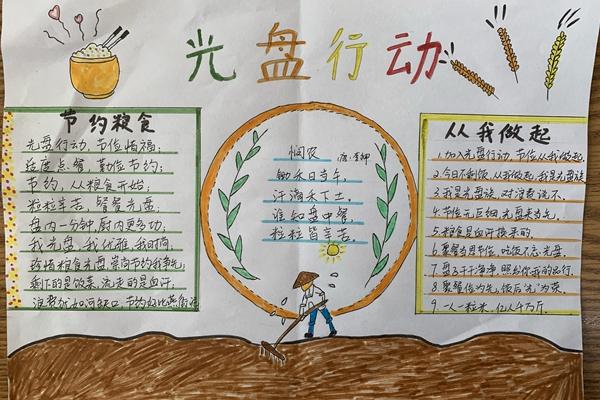 光盘行动
节约粮食
光盘行动,节俭惜福;
适度点餐,勤俭节约;
节约,从粮食开始;
粒粒辛苦,餐餐光盘;
盘内一分钟,厨内更多功;
我光盘,我优雅,我时尚;
珍惜粮食光盘,崇尚节约我争先;
剩下的是饭菜,流走的是血汗;
浪费犹如河缺口,节约好比燕衔泥
悯农
唐:李绅
锄禾日当午,
汗滴禾下土,
谁知盘中餐,
粒粒皆辛苦。
从我做起
1.加入光盘行动,节俭从我做起,
2.今日不剩饭,从我做起,我是光盘族
3.我是光盘族,对浪费说不,
4.节俭无巨细,光盘来为先,
5.粮食是血汗换来的,
6.聚餐当用节俭,吃饭不忘光盘,
7.盘子干干净净,照出你我的品行,
8.聚餐俭为先,饭后光为荣
9.一人一粒米,亿人千万斤.